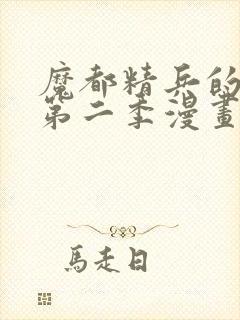 魔都精兵的
第二季漫畫
馬走日